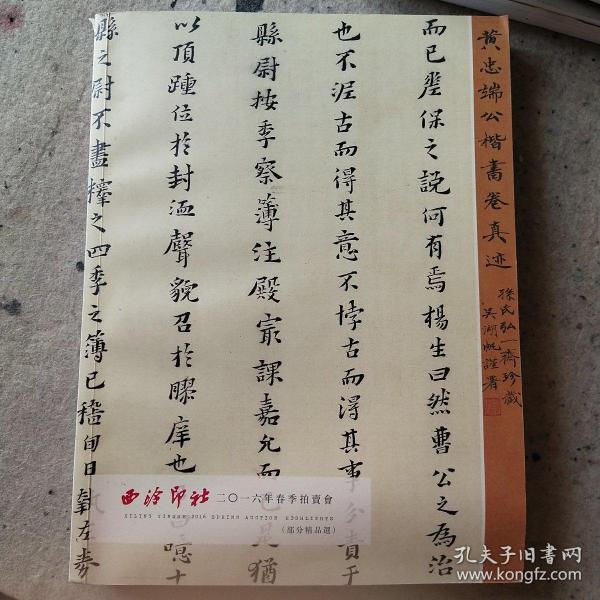 黄忠端公楷書卷真迹
孫氏弘一齋珍藏
吳湖帆謹署
而已塈保之說何有焉楊生曰然曹公之為治
也不泥古而得其意不悖古而得其事分責于
縣尉按季察簿注殿最課嘉允而
猶
以頂踵位於封洫聲貌召於膠庠也
曰噫十
縣之尉不盡釋之四季之簿已稽旬日
左券
西泠印社 二〇一六年春季拍賣會
XILING YINSHE 2016 SPRING AUCTION HIGHLIGHTS
(部分精品選)
孔夫子旧書网
www.kongfz.com